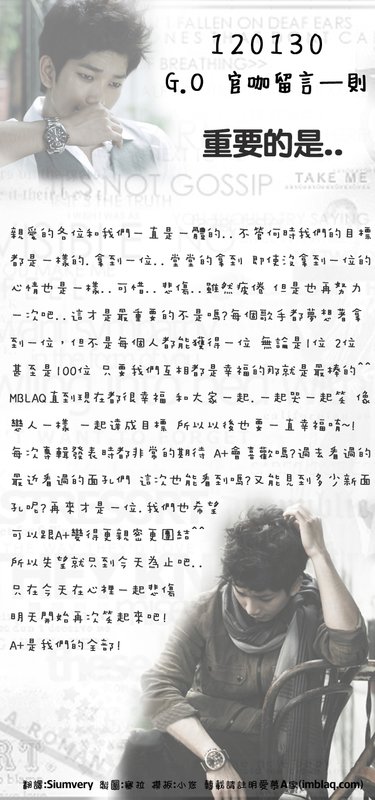 I FALLEN ON DEAF EARS
BREATHING>>
120130
G.O 官咖留言一則
重要的是..
'S NOT GOSSIP
TAKE ME
親愛的各位和我們一直是一體的..不管何時我們的目標
都是一樣的.拿到一位..堂堂的拿到 即使沒拿到一位的
心情也是一樣..可惜..悲傷..雖然疲倦 但是也再努力
一次吧..這才是最重要的不是嗎?每個歌手都夢想著拿
到一位，但不是每個人都能獲得一位 無論是1位 2位
甚至是100位 只要我們互相都是幸福的那就是最棒的^^
MBLAQ直到現在都很幸福 和大家一起.一起哭一起笑 像
戀人一樣 一起達成目標 所以以後也要一直幸福唷~!
每次專輯發表時都非常的期待 A+會喜歡嗎?過去看過的
最近看過的面孔們 這次也能看到嗎?又能見到多少新面
孔呢?再來才是一位.我們也希望
可以跟A+變得更親密更團結^^
所以失望就只到今天為止吧..
只在今天在心裡一起悲傷
明天開始再次笑起來吧!
A+是我們的全部!
翻譯:Siumvery 製圖:塞拉 模版:小悠 轉載請註明愛慕A家(imblaq.com)